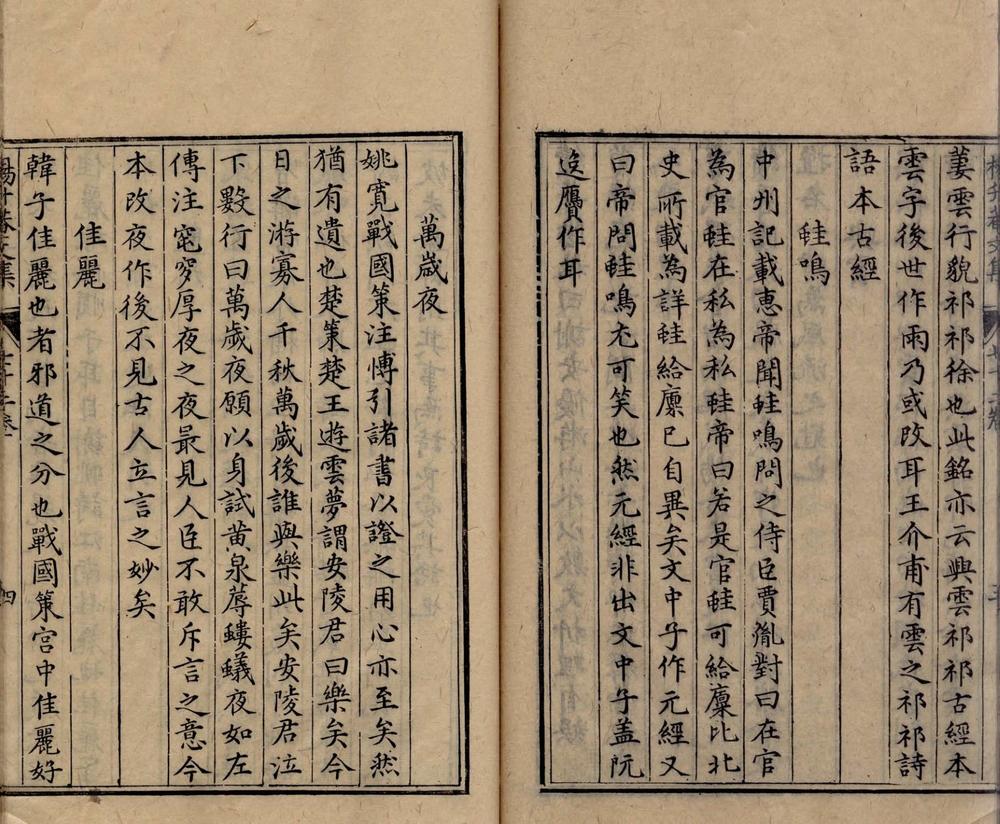 萋雲行貌祁祁徐也此銘亦云興雲祁祁古經本
雲字後世作雨乃或改耳王介甫有雲之祁祁詩
語本古經
鼃鳴
中州記載惠帝聞鼃鳴問之侍臣賈胤對曰在官
為官鼃在私為私鼃帝曰若是官鼃可給廩比北
史所載為詳鼃給廩已自異矣文中子作元經又
曰帝問鼃鳴尤可笑也然元經非出文中子盖阮
逸贋作耳
萬歲夜
姚寬戰國策注愽引諸書以證之用心亦至矣然
猶有遺也楚策楚王遊雲夢謂安陵君曰樂矣今
日之游寡人千秋萬歲後誰與樂此矣安陵君泣
下數行曰萬歲夜願以身試黃泉蓐螻蟻夜如左
傳注窀穸厚夜之夜最見人臣不敢斥言之意今
本改夜作後不見古人立言之妙矣
佳麗
韓子佳麗也者邪道之分也戰國策宮中佳麗好
四